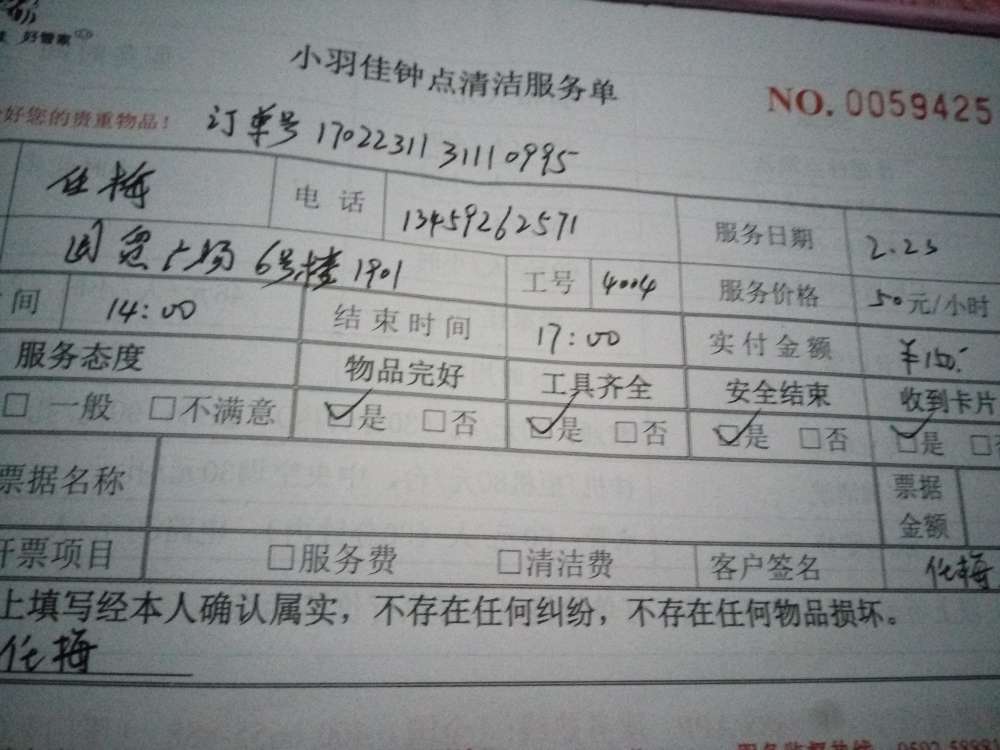 好管家
小羽佳钟点清洁服务单
NO. 0059425
好您的贵重物品！ 订单号 1702231131110995
任梅 电话 13459262571 服务日期 2.23
国贸广场6号楼1901 工号 4004 服务价格 50元/小时
间 14:00 结束时间 17:00 实付金额 ¥150.
服务态度 物品完好 工具齐全 安全结束 收到卡片
□一般 □不满意 ☑是 □否 ☑是 □否 ☑是 □否 ☑是
票据名称 票据金额
开票项目 □服务费 □清洁费 客户签名 任梅
上填写经本人确认属实，不存在任何纠纷，不存在任何物品损坏。
任梅